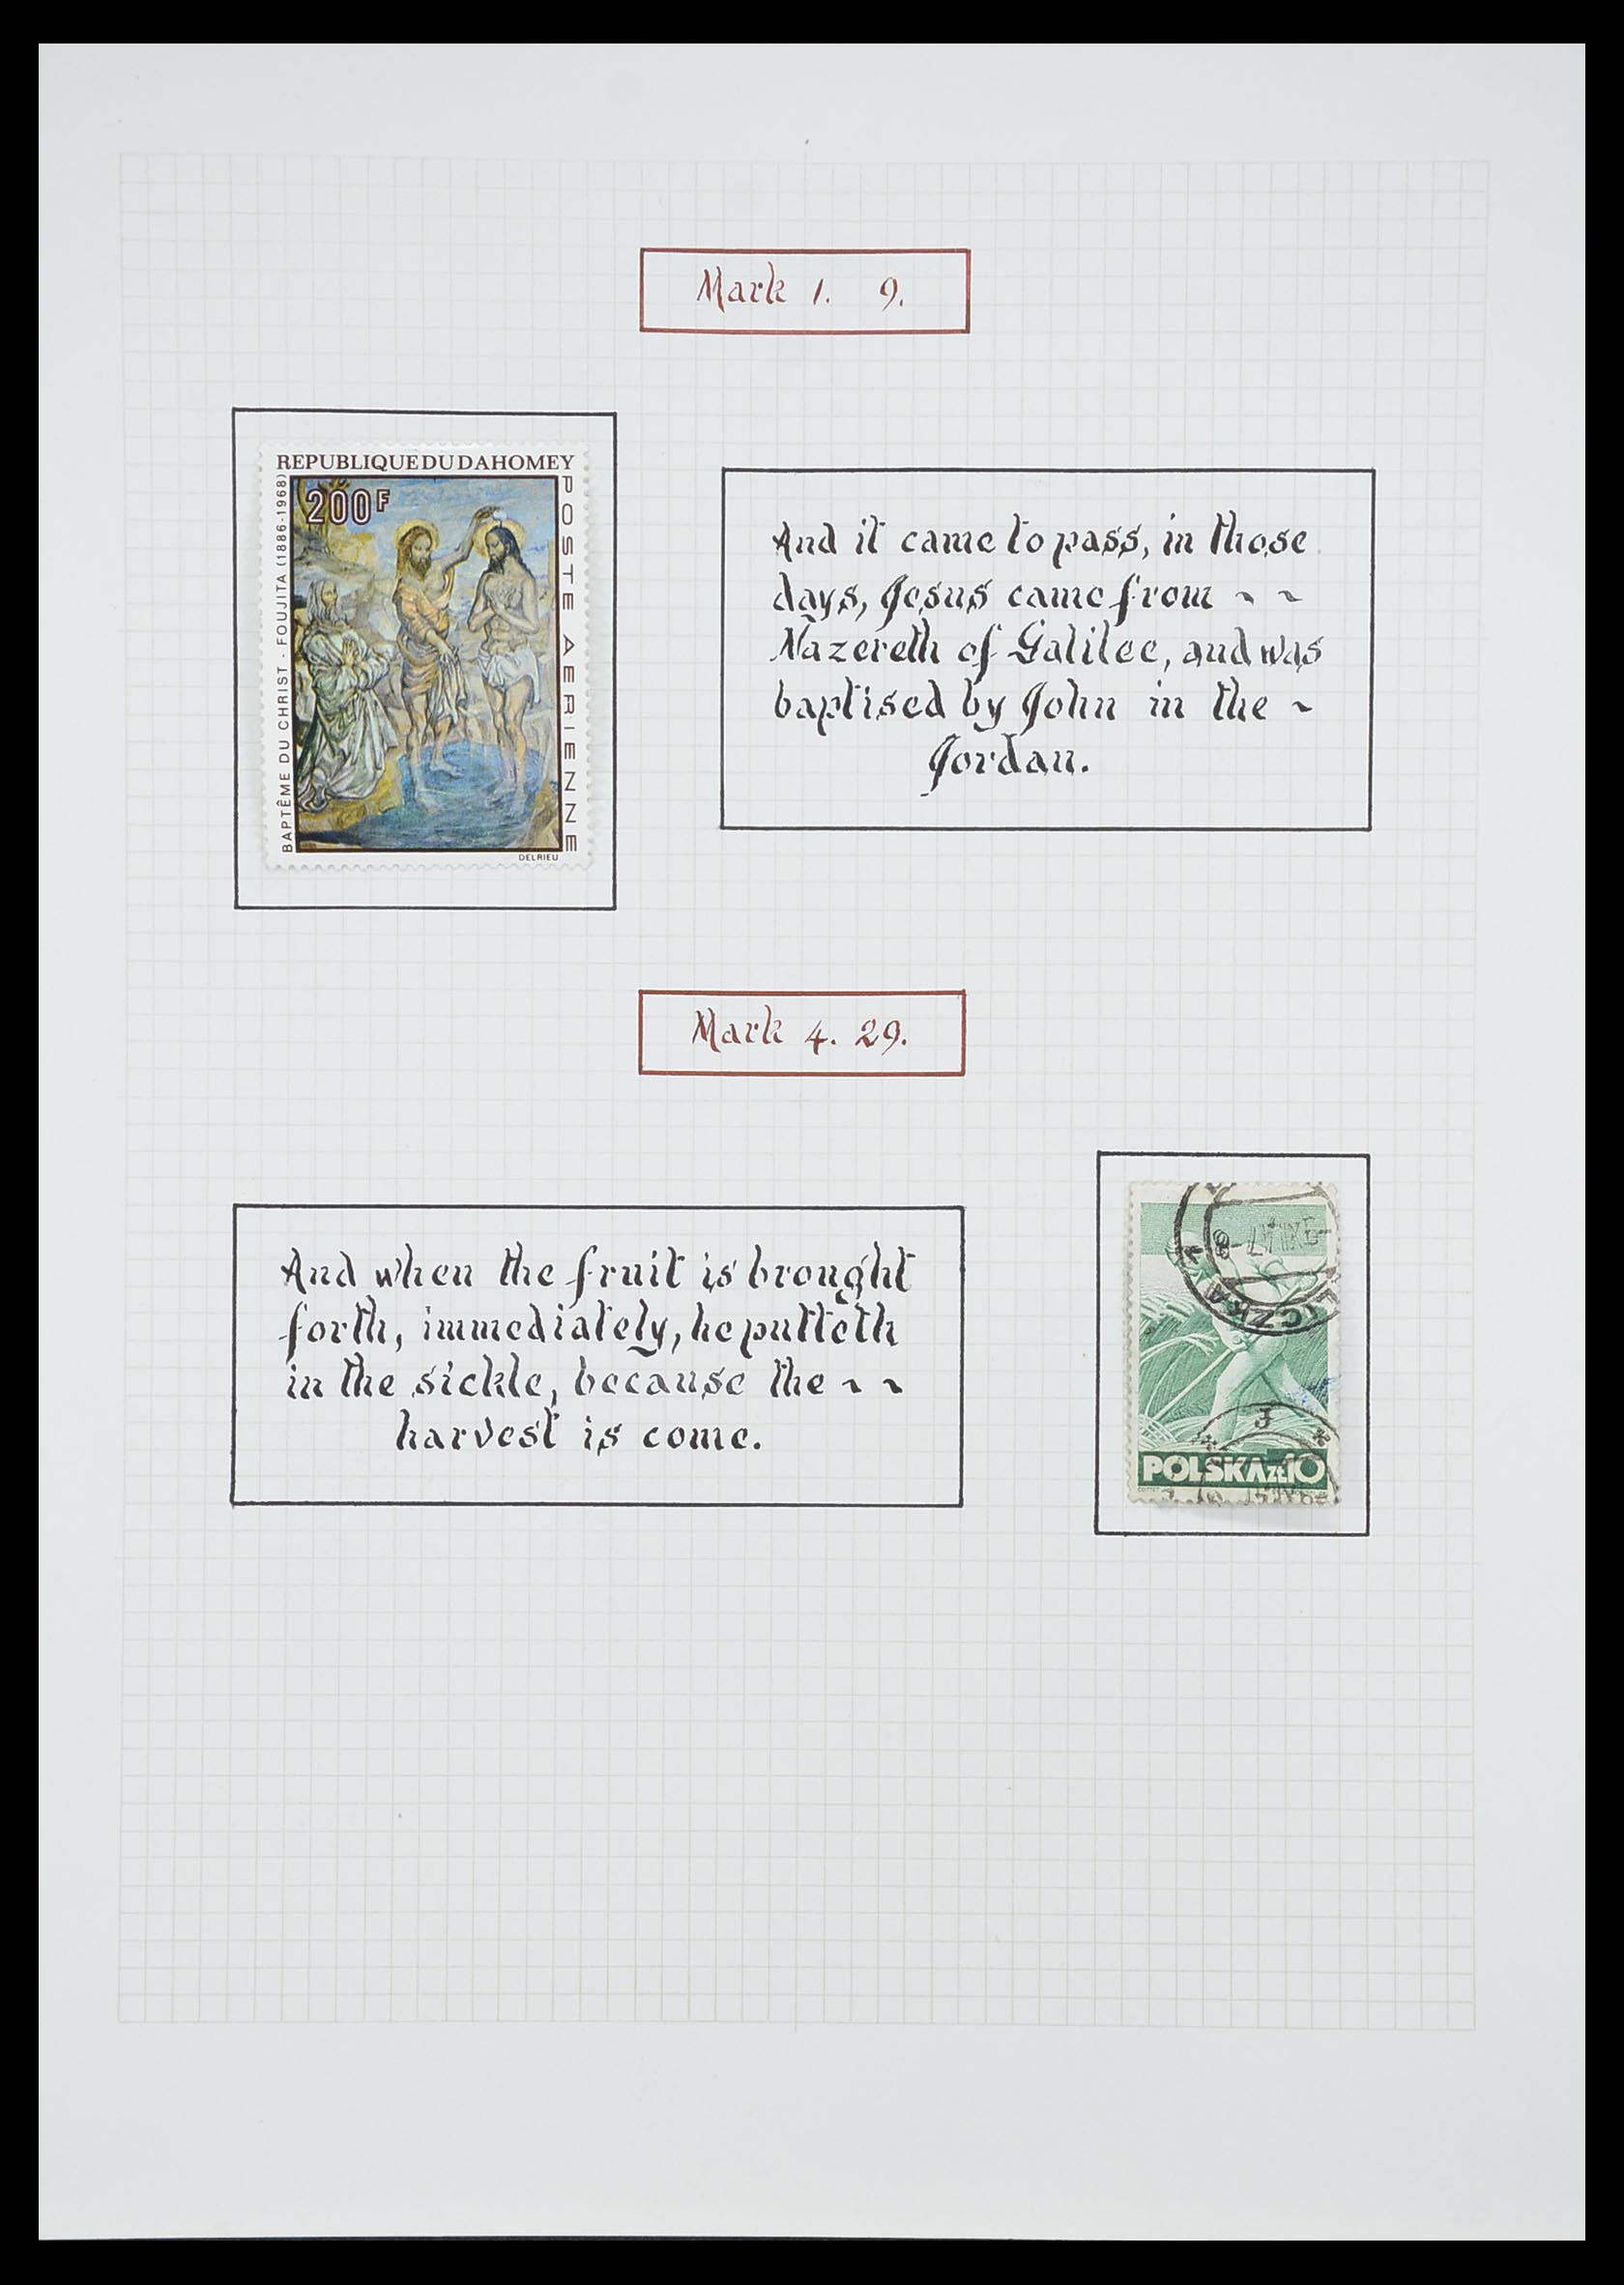 Mark 1. 9.
REPUBLIQUE DU DAHOMEY
200F
BAPTÊME DU CHRIST - FOUJITA (1886-1968)
POSTE AERIENNE
DELRIEU
And it came to pass, in those
days, Jesus came from ~ ~
Nazereth of Galilee, and was
baptised by John in the ~
Jordan.
Mark 4. 29.
And when the fruit is brought
forth, immediately, he putteth
in the sickle, because the ~ ~
harvest is come.
POLSKA ZŁ 10